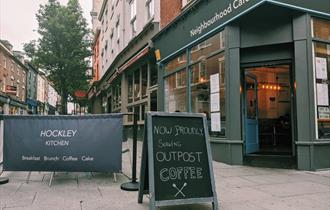 Neighbourhood Cafe
HOCKLEY
KITCHEN
Breakfast Brunch Coffee Cake
NOW PROUDLY
SERVING
OUTPOST
COFFEE